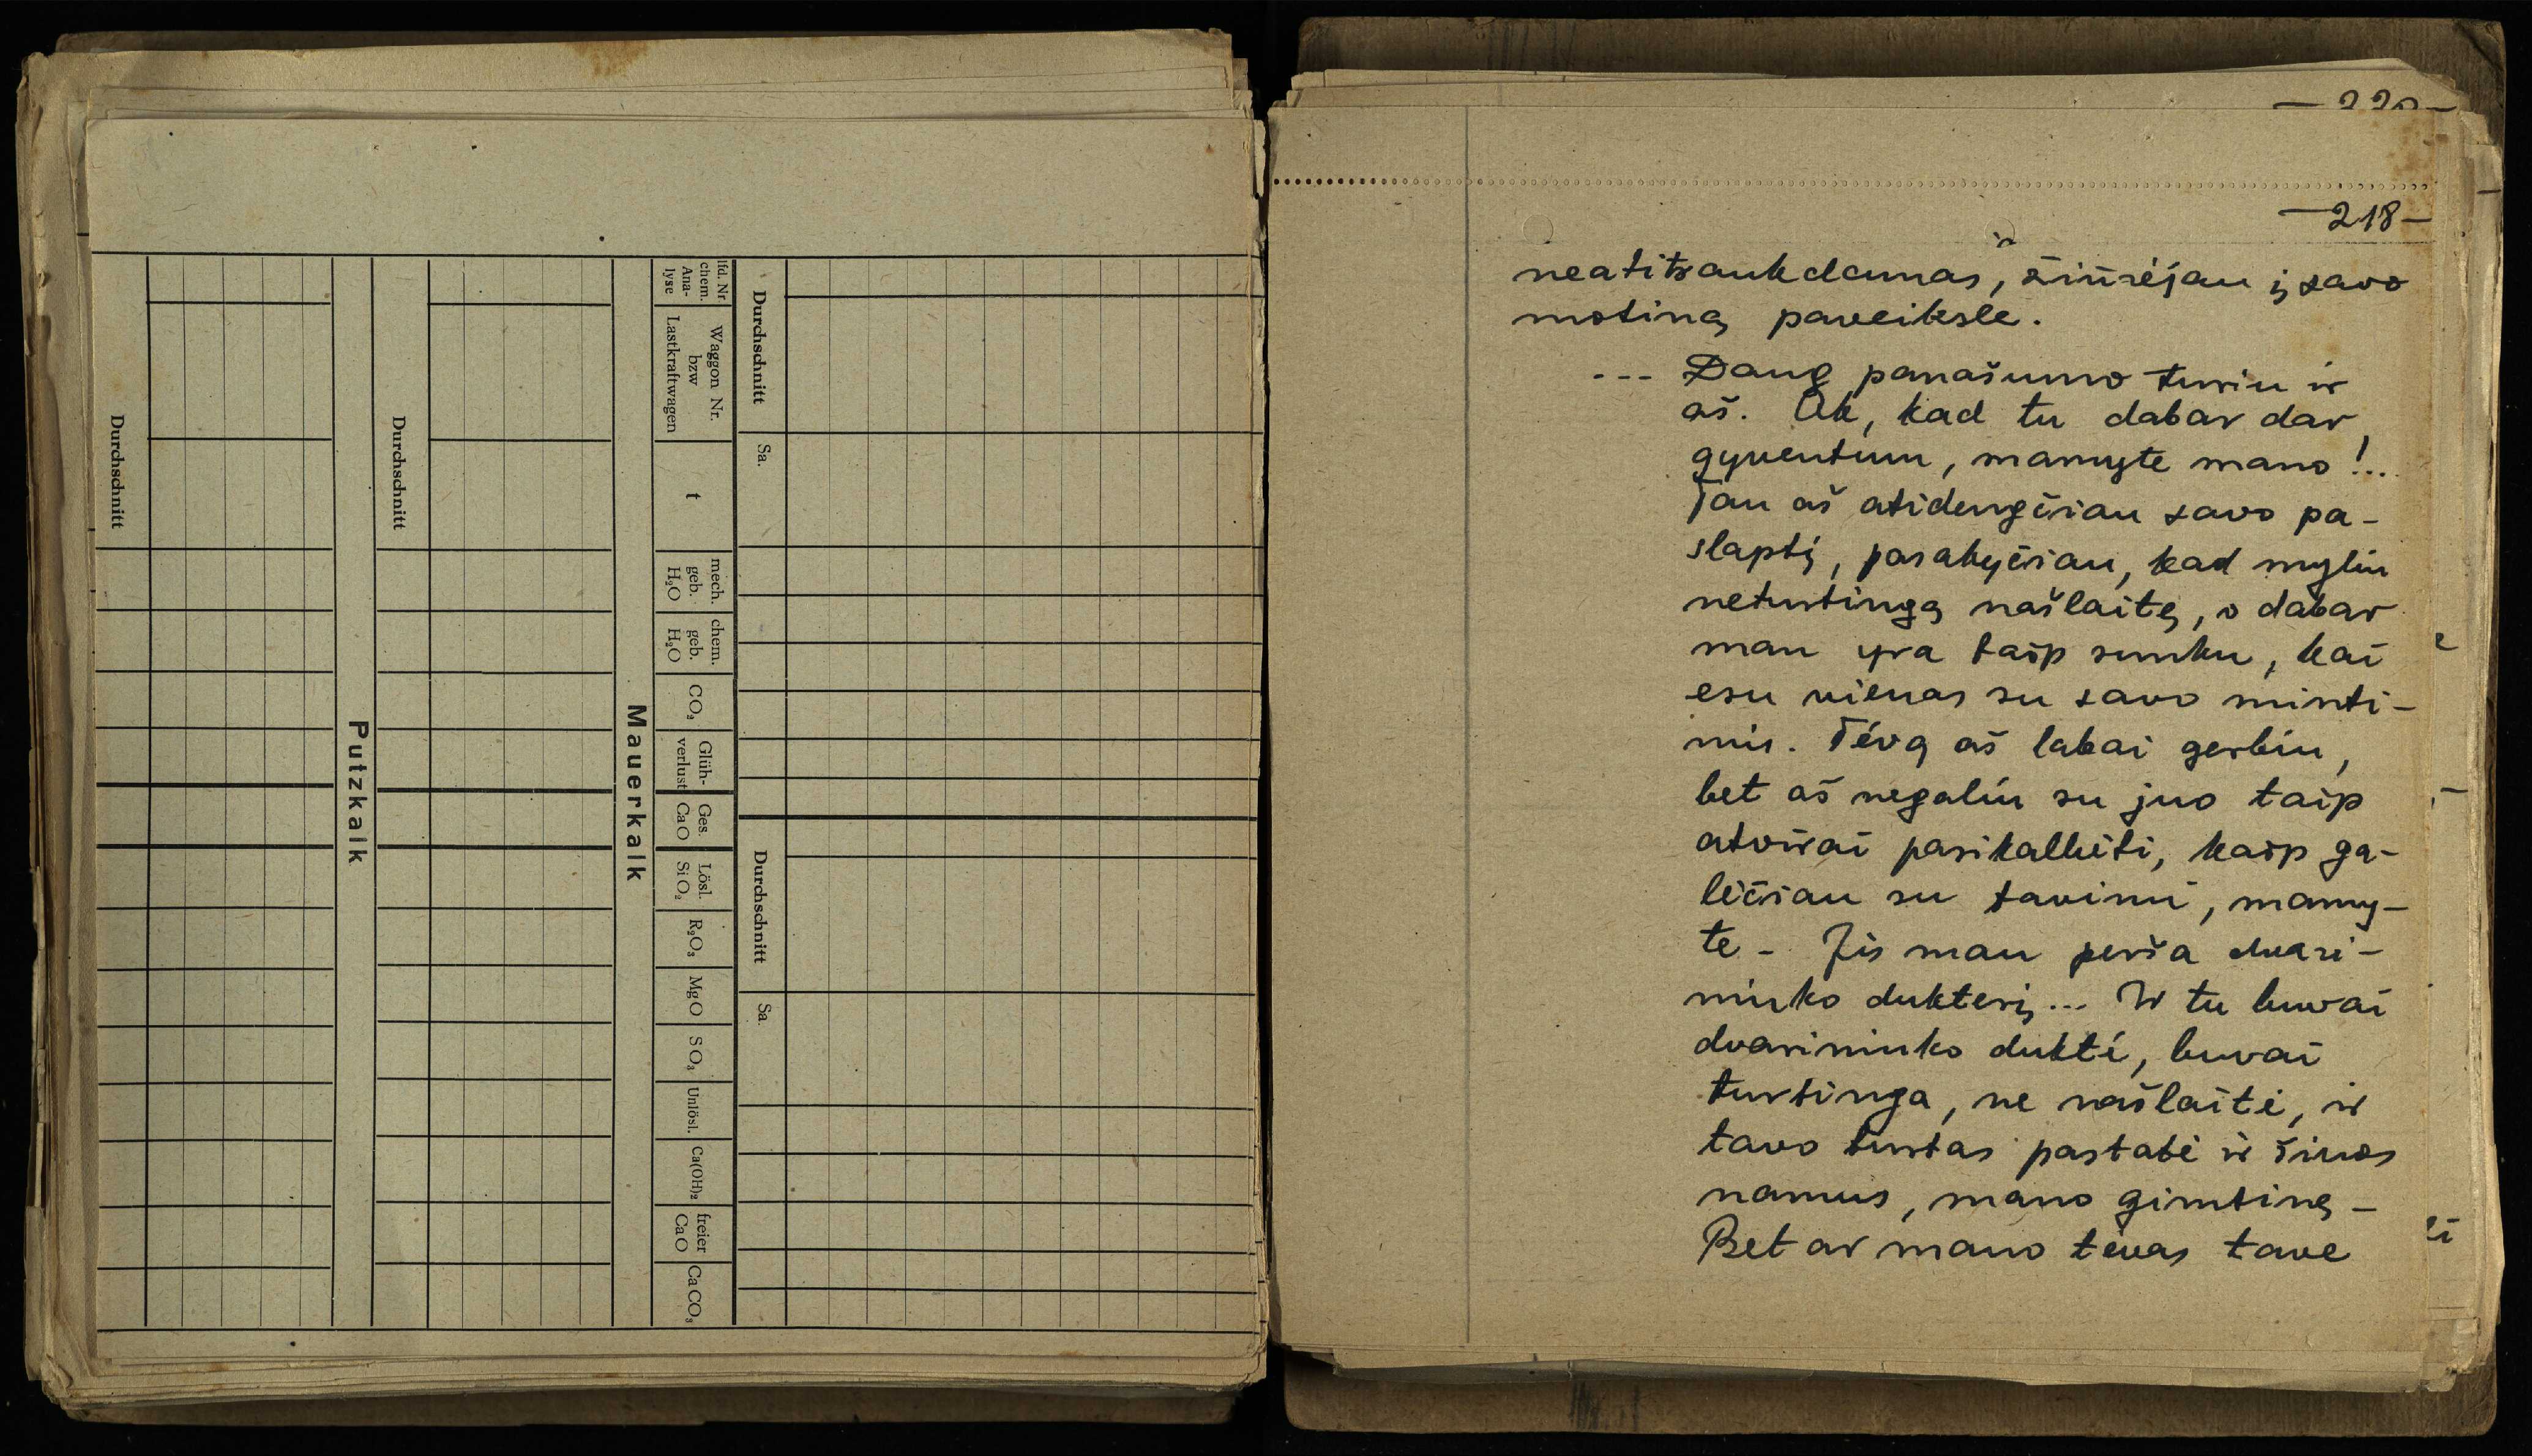 Durchschnitt
Sa.
Durchschnitt
Sa.
lfd. Nr.
chem.
Ana-
lyse
Waggon Nr.
bzw
Lastkraftwagen
t
mech.
geb.
H₂O
chem.
geb.
H₂O
CO₂
Glüh-
verlust
Ges.
CaO
Lösl.
SiO₂
R₂O₃
MgO
SO₃
Unlösl.
Ca(OH)₂
freier
CaO
CaCO₃
Mauerkalk
Durchschnitt
Putzkalk
Durchschnitt
— 220 —
— 218 —
ir
neatitraukdamas, žiūrėjau į savo
motiną paveiksle.
--- Daug panašumo turiu ir
aš. Ak, kad tu dabar dar
gyventum, mamyte mano!..
Tau aš atidengčiau savo pa-
slaptį, pasakyčiau, kad myliu
neturtingą našlaitę, o dabar
man yra taip sunku, kai
esu vienas su savo minti-
mis. Tėvą aš labai gerbiu,
bet aš negaliu su juo taip
atvirai pasikalbėti, kaip ga-
lėčiau su tavimi, mamy-
te - Jis man perša dvari-
ninko dukterį... Ir tu buvai
dvarininko duktė, buvai
turtinga, ne našlaitė, ir
tavo turtas pastatė ir šiuos
namus, mano gimtinę -
Bet ar mano tėvas tave